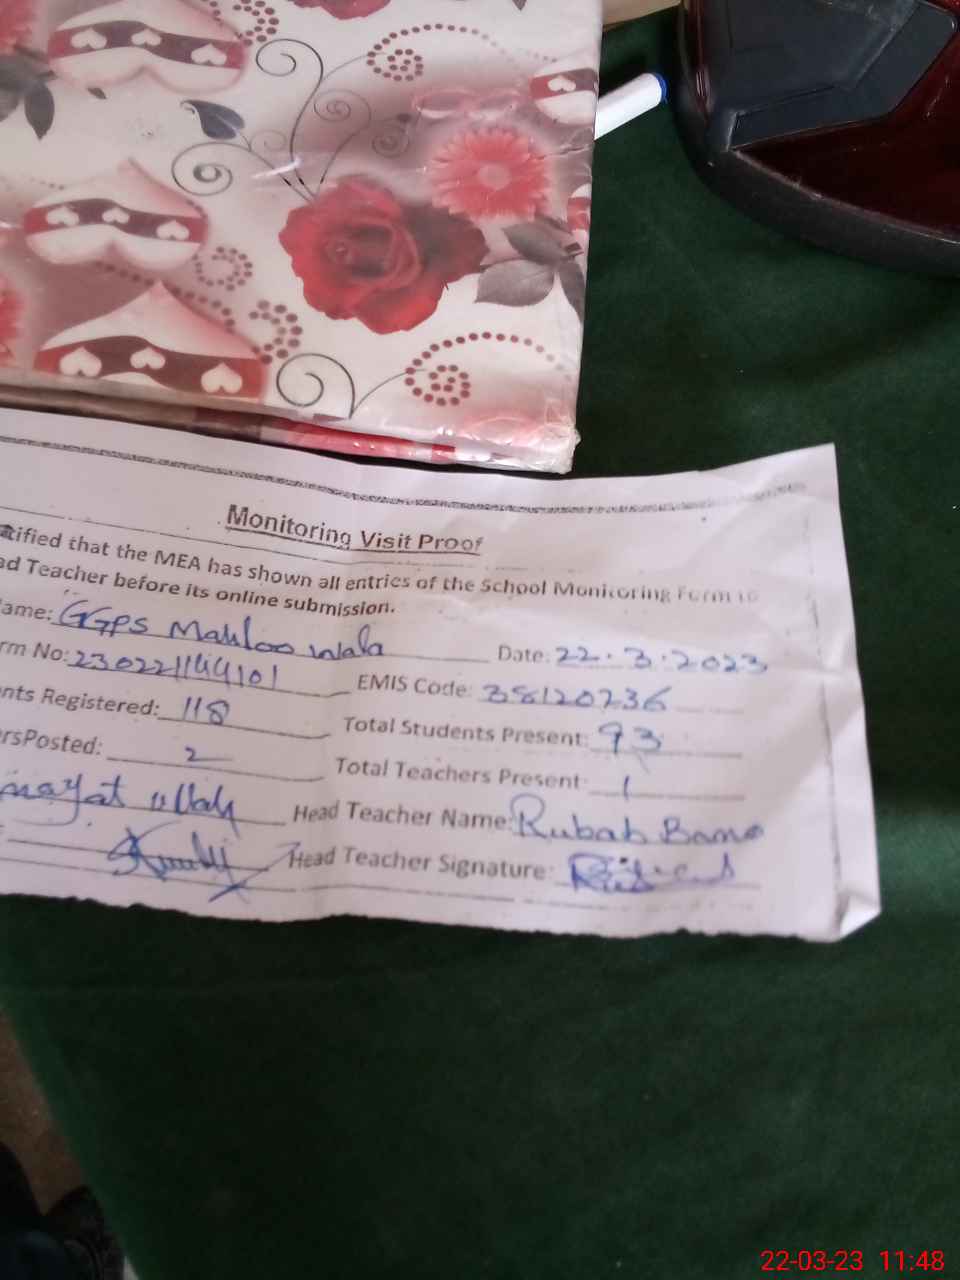 Monitoring Visit Proof
tified that the MEA has shown all entries of the School Monitoring Form to
ad Teacher before its online submission.
ame: GGPS Mahloo wala Date: 22.3.2023
rm No: 230221144101 EMIS Code: 38120236
nts Registered: 118 Total Students Present: 93
ersPosted: 2 Total Teachers Present: 1
nayat ullah Head Teacher Name: Rubab Bano
Head Teacher Signature:
22-03-23 11:48